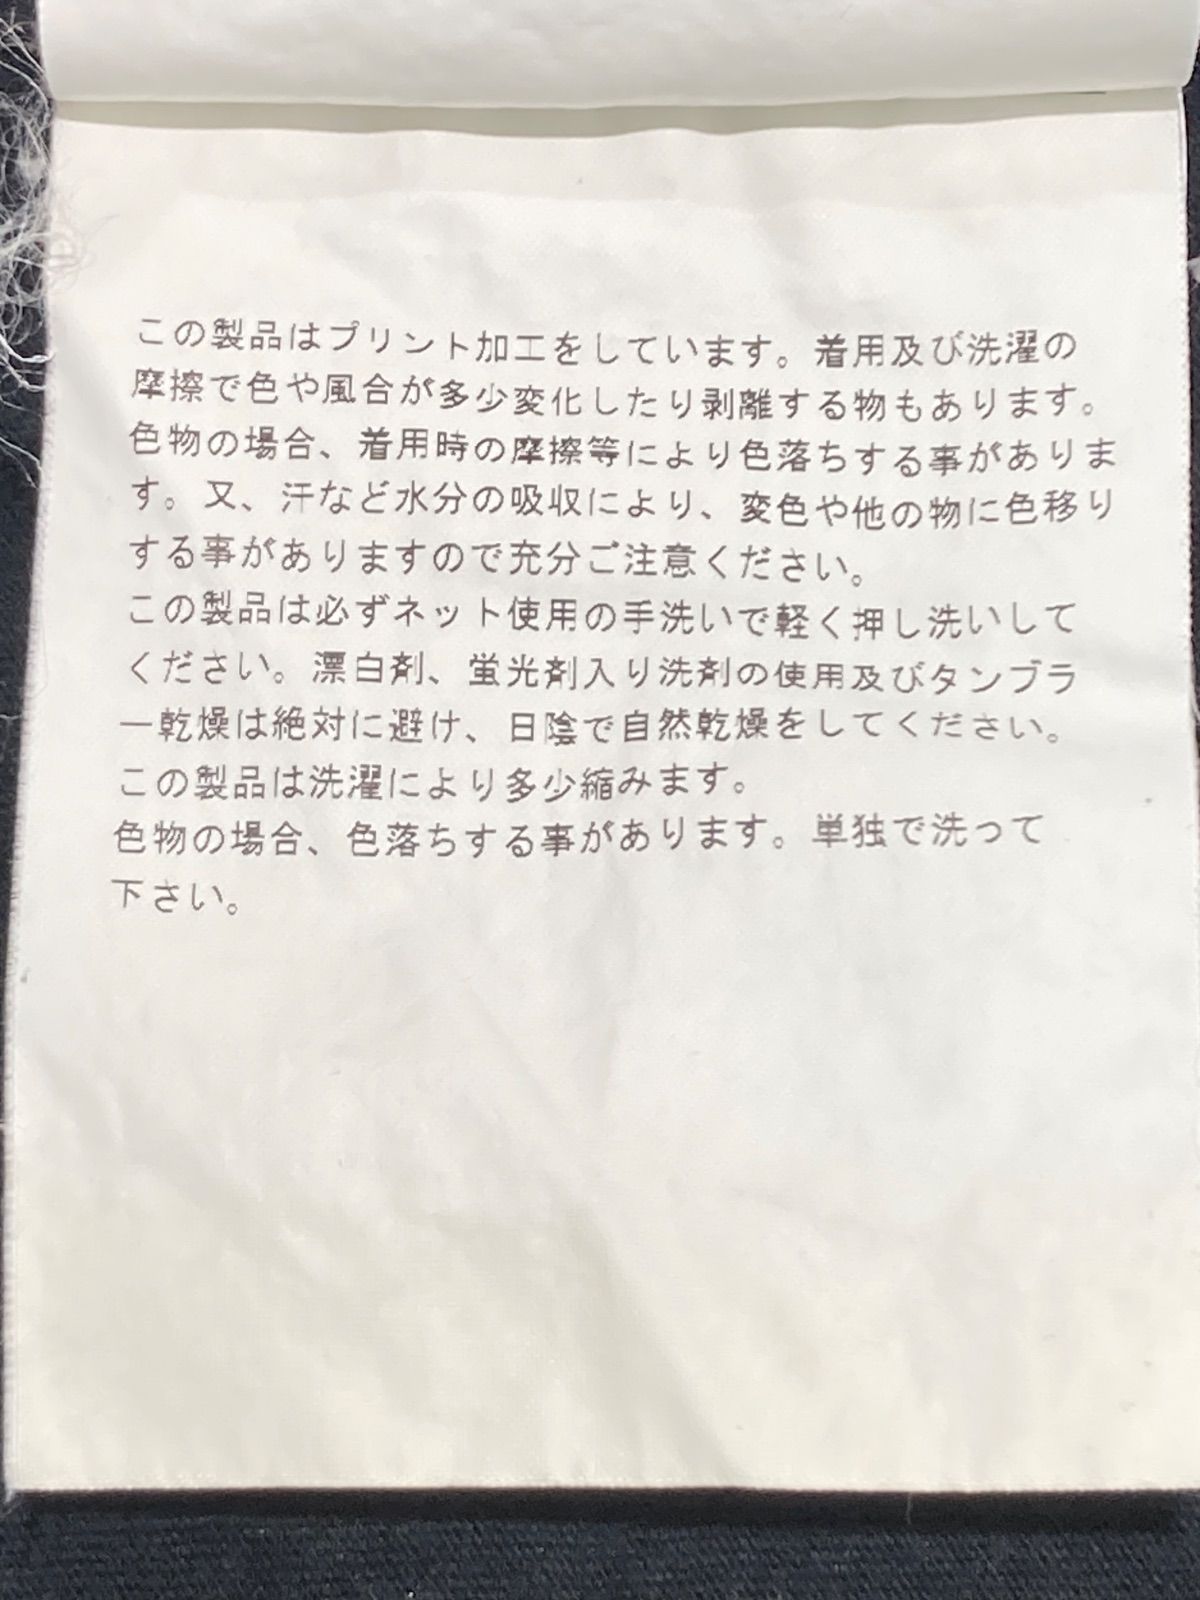 この製品はプリント加工をしています。着用及び洗濯の
摩擦で色や風合が多少変化したり剥離する物もあります。
色物の場合、着用時の摩擦等により色落ちする事がありま
す。又、汗など水分の吸収により、変色や他の物に色移り
する事がありますので充分ご注意ください。
この製品は必ずネット使用の手洗いで軽く押し洗いして
ください。漂白剤、蛍光剤入り洗剤の使用及びタンブラ
ー乾燥は絶対に避け、日陰で自然乾燥をしてください。
この製品は洗濯により多少縮みます。
色物の場合、色落ちする事があります。単独で洗って
下さい。